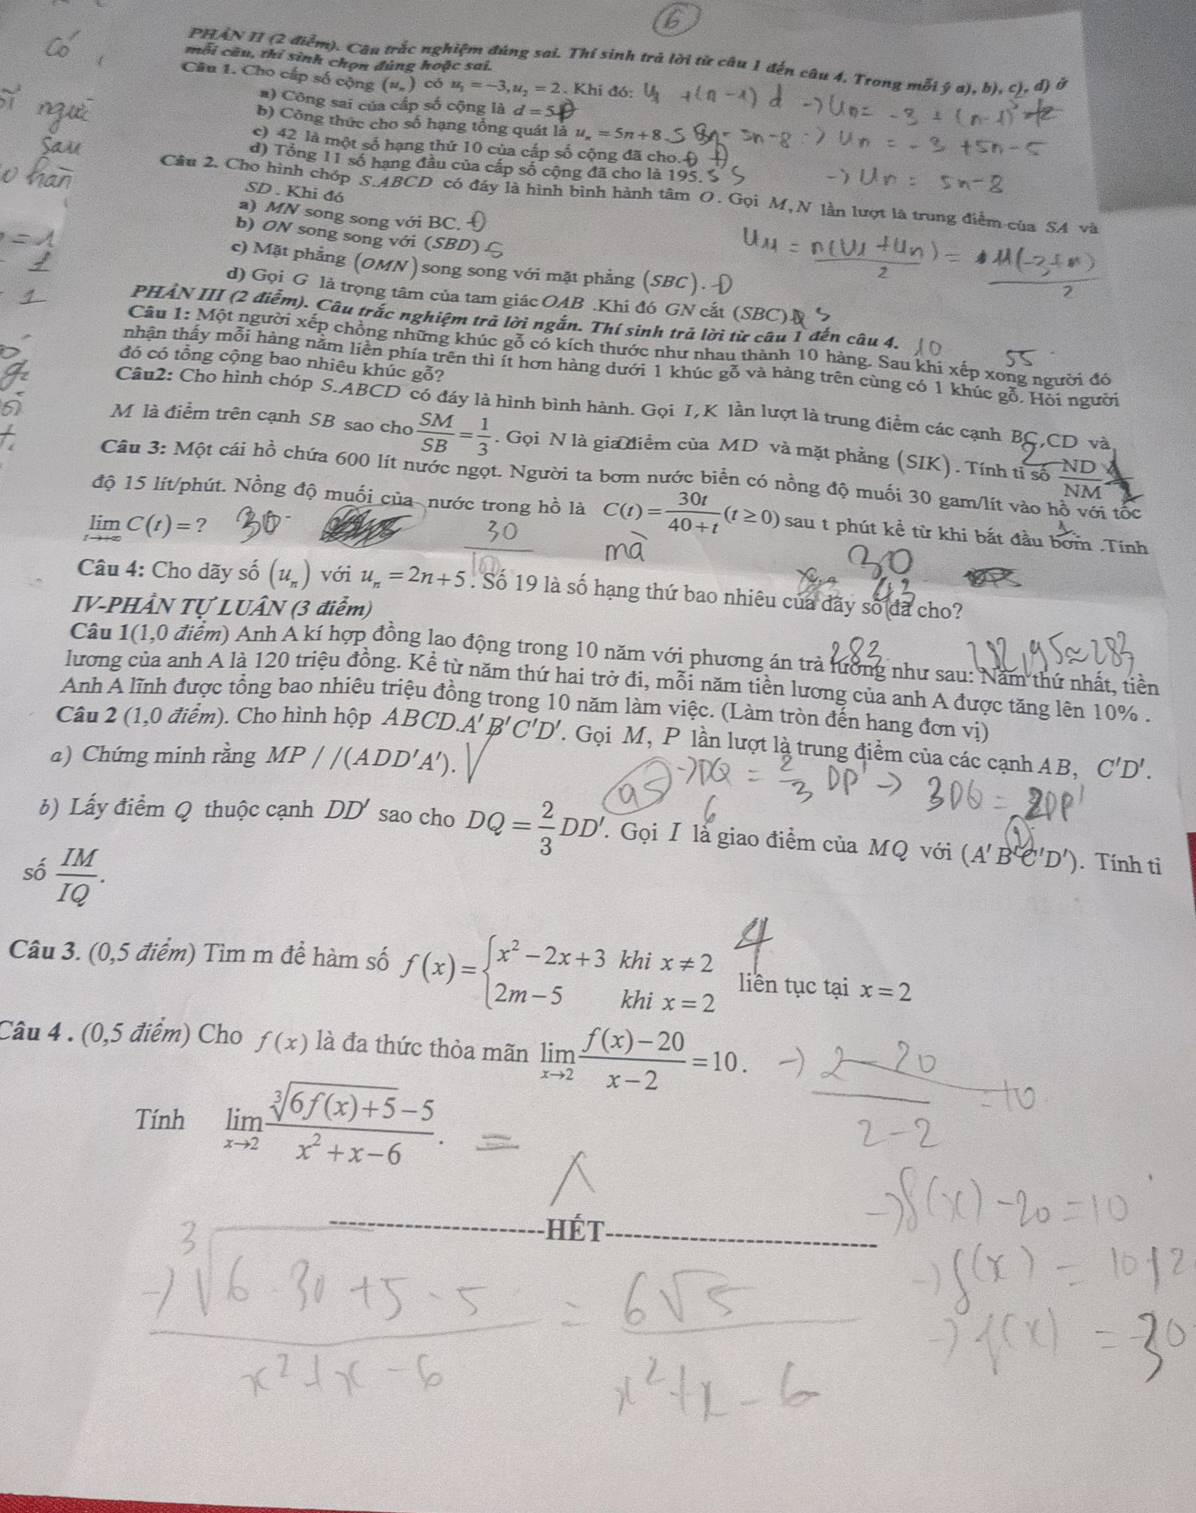 6
Có
PHẦN II (2 điểm). Câu trắc nghiệm đúng sai. Thí sinh trả lời từ câu 1 đến câu 4. Trong mỗi ý a), b), c), d) ở
mỗi câu, thí sinh chọn đúng hoặc sai.
Câu 1. Cho cấp số cộng (uₙ) có u₁ = −3, u₂ = 2. Khi đó:
a) Công sai của cấp số cộng là d = 5
b) Công thức cho số hạng tổng quát là uₙ = 5n + 8. S
c) 42 là một số hạng thứ 10 của cấp số cộng đã cho.
d) Tổng 11 số hạng đầu của cấp số cộng đã cho là 195. S
-> Un = -3 + 5n - 5
-> Un = 5n-8
Câu 2. Cho hình chóp S.ABCD có đáy là hình bình hành tâm O. Gọi M, N lần lượt là trung điểm của SA và
SD. Khi đó
a) MN song song với BC. Đ
b) ON song song với (SBD) S
c) Mặt phẳng (OMN) song song với mặt phẳng (SBC). Đ
d) Gọi G là trọng tâm của tam giác OAB .Khi đó GN cắt (SBC) S
PHẦN III (2 điểm). Câu trắc nghiệm trả lời ngắn. Thí sinh trả lời từ câu 1 đến câu 4.
Câu 1: Một người xếp chồng những khúc gỗ có kích thước như nhau thành 10 hàng. Sau khi xếp xong người đó
nhận thấy mỗi hàng nằm liền phía trên thì ít hơn hàng dưới 1 khúc gỗ và hàng trên cùng có 1 khúc gỗ. Hỏi người
đó có tổng cộng bao nhiêu khúc gỗ?
10
55
Câu2: Cho hình chóp S.ABCD có đáy là hình bình hành. Gọi I, K lần lượt là trung điểm các cạnh BC, CD và
M là điểm trên cạnh SB sao cho SM/SB = 1/3. Gọi N là gia điểm của MD và mặt phẳng (SIK). Tính tỉ số ND/NM
Câu 3: Một cái hồ chứa 600 lít nước ngọt. Người ta bơm nước biển có nồng độ muối 30 gam/lít vào hồ với tốc
độ 15 lít/phút. Nồng độ muối của nước trong hồ là C(t) = 30t/(40+t) (t ≥ 0) sau t phút kể từ khi bắt đầu bơm .Tính
lim t→+∞ C(t) = ? 30
30
mà
30
Câu 4: Cho dãy số (uₙ) với uₙ = 2n + 5. Số 19 là số hạng thứ bao nhiêu của dãy số đã cho?
IV-PHẦN TỰ LUÂN (3 điểm)
Câu 1(1,0 điểm) Anh A kí hợp đồng lao động trong 10 năm với phương án trả lương như sau: Năm thứ nhất, tiền
lương của anh A là 120 triệu đồng. Kể từ năm thứ hai trở đi, mỗi năm tiền lương của anh A được tăng lên 10% .
Anh A lĩnh được tổng bao nhiêu triệu đồng trong 10 năm làm việc. (Làm tròn đến hang đơn vị)
283
282,95≈283
Câu 2 (1,0 điểm). Cho hình hộp ABCD.A'B'C'D'. Gọi M, P lần lượt là trung điểm của các cạnh AB, C'D'.
a) Chứng minh rằng MP / /(ADD'A').
-> DQ = 2/3 DP' -> 3DQ = 2DP'
b) Lấy điểm Q thuộc cạnh DD' sao cho DQ = 2/3 DD'. Gọi I là giao điểm của MQ với (A'B'C'D'). Tính tỉ
số IM/IQ.
Câu 3. (0,5 điểm) Tìm m để hàm số f(x) = { x² − 2x + 3 khi x ≠ 2
2m − 5 khi x = 2 liên tục tại x = 2
4
Câu 4 . (0,5 điểm) Cho f(x) là đa thức thỏa mãn lim x→2 (f(x) − 20)/(x − 2) = 10.
-> (2-20)/(2-2) = 10
Tính lim x→2 (∛(6f(x)+5) − 5)/(x² + x − 6). =
-> f(x) - 20 = 10
HẾT
-> f(x) = 30
-> (∛(6.30+5) - 5)/(x²+x-6) = 6√5/(x²+x-6)